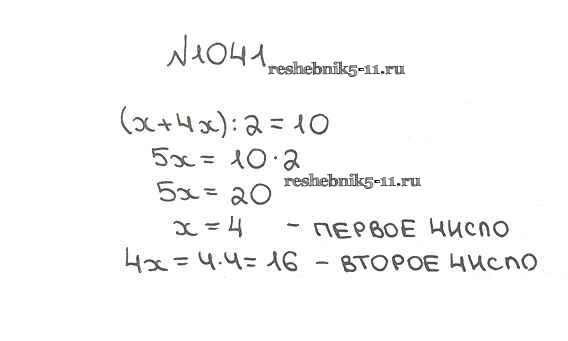 №1041
reshebnik5-11.ru
(x+4x):2=10
5x=10·2
5x=20
reshebnik5-11.ru
x=4 - ПЕРВОЕ ЧИСЛО
4x=4·4=16 - ВТОРОЕ ЧИСЛО